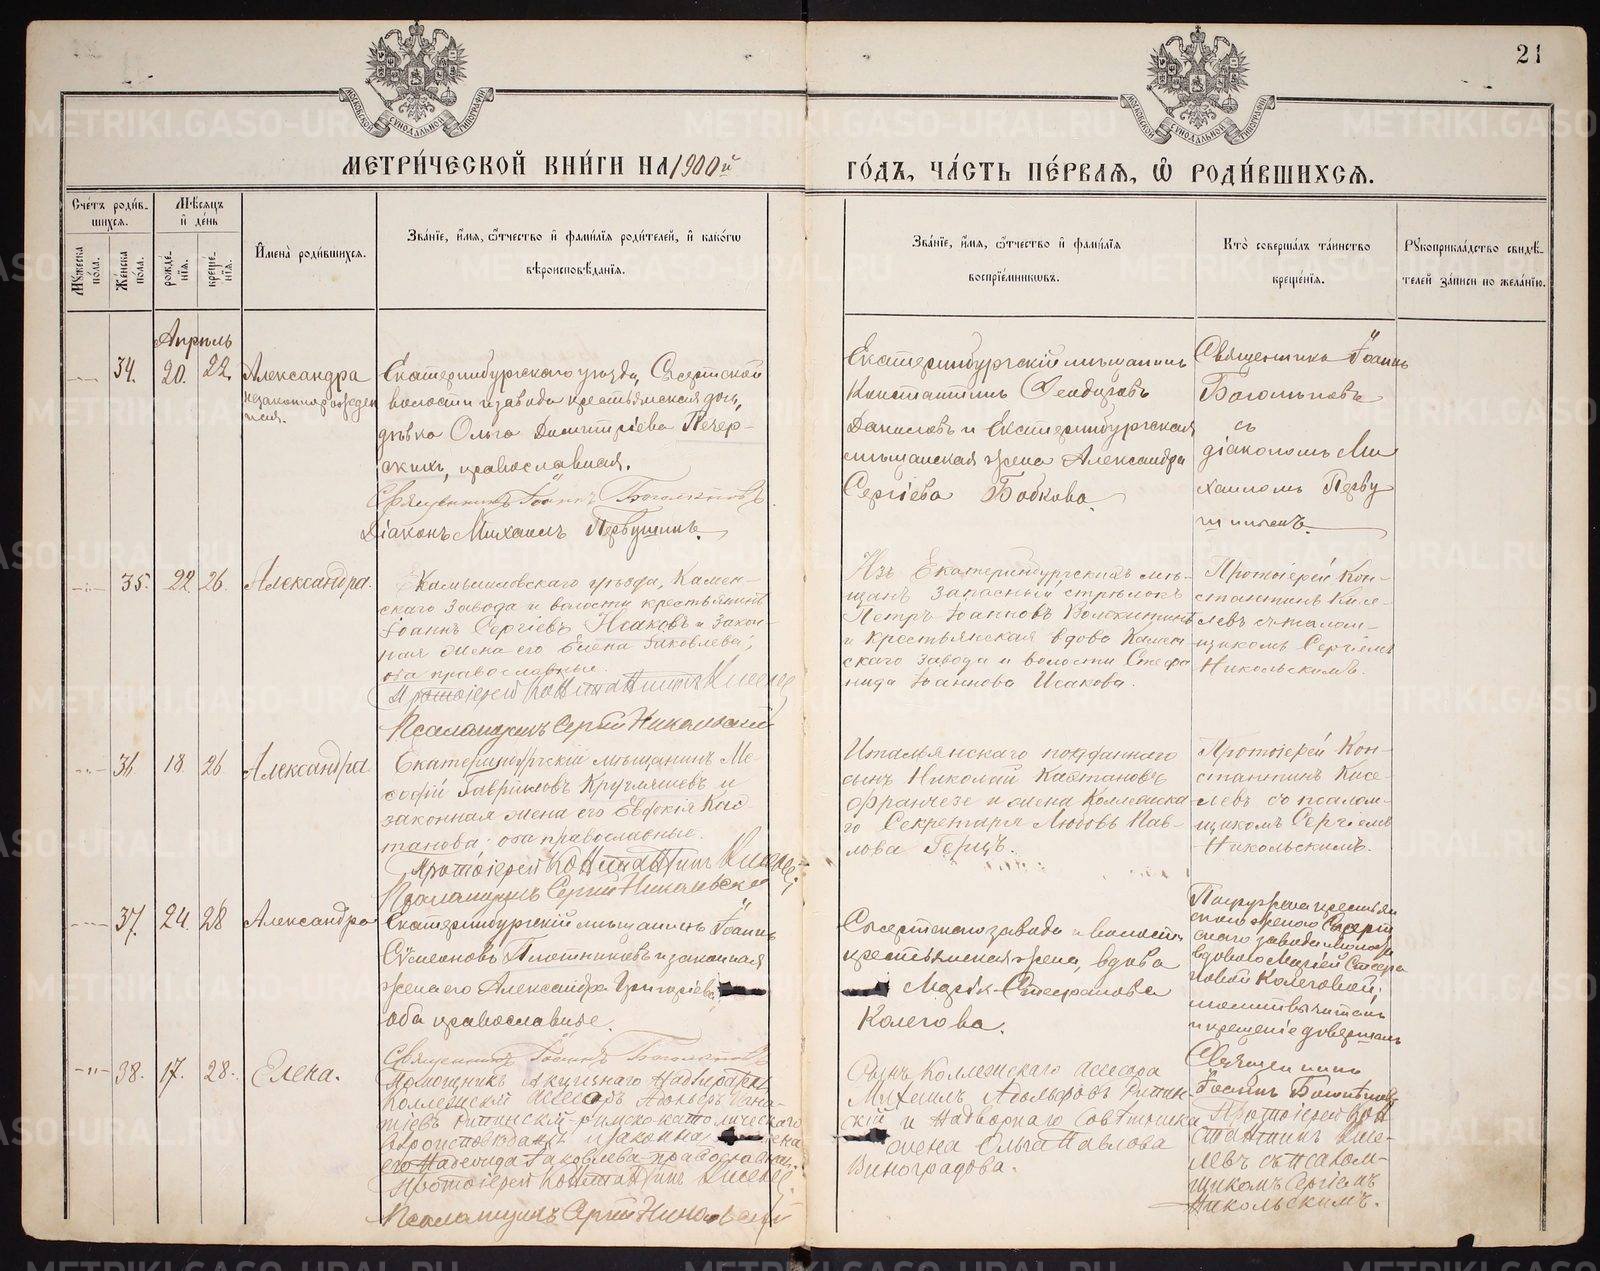 21
МОСКОВСКОЙ СѴНОДАЛЬНОЙ ТИПОГРАФІИ
МОСКОВСКОЙ СѴНОДАЛЬНОЙ ТИПОГРАФІИ
МЕТРИ́ЧЕСКОЙ КНИ́ГИ НА 1900й
ГО́ДЪ, ЧА́СТЬ ПЕ́РВАЯ, Ѡ РОДИ́ВШИХСЯ.
Сче́тъ роди́в-
шихся.
Мѣ́сяцъ
и҆ де́нь
Мꙋ́жеска
пола.
Же́нска
пола.
рожде-
нїѧ.
креще-
нїѧ.
И҆мена̀ роди́вшихсѧ.
Зва́нїе, и҆́мѧ, ѻ҆́тчество и҆ фами́лїѧ роди́телей, и҆ како́гѡ
вѣроисповѣ́данїѧ.
Зва́нїе, и҆́мѧ, ѻ҆́тчество и҆ фами́лїѧ
воспрїе́мникѡвъ.
Кто̀ соверша́лъ та́инство
креще́нїѧ.
Рꙋкоприкла́дство свидѣ́-
телей за́писи по жела́нїю.
Апрѣль
34. 20. 22.
Александра
незаконнорожден
ная.
Екатеринбургскаго уѣзда, Сысертской
волости и завода крестьянская дочь,
дѣвка Ольга Димитріева Печер-
скихъ, православная.
Священникъ Іоаннъ Боголѣповъ
Діаконъ Михаилъ Первушинъ.
Екатеринбургскій мѣщанинъ
Константинъ Ѳеодоровъ
Даниловъ и Екатеринбургская
мѣщанская жена Александра
Сергіева Бобкова.
Священникъ Іоаннъ
Боголѣповъ
съ
діакономъ Ми
хаиломъ Перву
шинымъ
35. 22. 26.
Александра.
Камышловскаго уѣзда, Камен-
скаго завода и волости крестьянинъ
Іоаннъ Сергіевъ Исаковъ и закон-
ная жена его Елена Іаковлева;
оба православные.
Протоіерей Константинъ Киселев
Псаломщикъ Сергій Никольскій
Изъ Екатеринбургскихъ мѣ-
щанъ запасный стрѣлокъ
Петръ Іоанновъ
и крестьянская вдова Камен-
скаго завода и волости Стефа
нида Іоаннова Исакова.
Протоіерей Кон-
стантинъ Кисе-
левъ съ псалом-
щикомъ Сергіемъ
Никольскимъ.
36 18. 26.
Александра
Екатеринбургскій мѣщанинъ Ме-
содій Гавриловъ Кругляшевъ и
законная жена его Евдокія Каэ-
танова оба православные.
Протоіерей Константинъ Киселев
Псаломщикъ Сергій Никольскій
Итальянскаго подданнаго
сынъ Николай Каэтановъ
Франчезе и жена Коллежска
го Секретаря Любовь Пав-
лова Герцъ.
Протоіерей Кон-
стантинъ Кисе-
левъ съ псалом-
щикомъ Сергіемъ
Никольскимъ.
37. 24. 28
Александра
Екатеринбургскій мѣщанинъ Іоаннъ
Сѵмеоновъ Плотниковъ и законная
жена его Александра Григоріева
оба православные.
Священникъ Іоаннъ Боголѣповъ
Сысертскаго завода и волости
крестьянская жена, вдова
Марія Стефанова
Колегова.
Погружена крестьян
скою женою Сысерт
скаго завода и волости
вдовою Маріей Стефа
новой Колеговой;
молитвы читалъ
и крещеніе довершалъ
Священникъ
Іоаннъ Боголѣповъ
38. 17. 28.
Елена.
Помощникъ Акцизнаго Надзирателя
Коллежскій Ассесоръ Адольфъ Игна-
тіевъ римско-католическаго
вѣроисповѣданія и законная жена
его Надежда Іаковлева православная.
Протоіерей Константинъ Киселев
Псаломщикъ Сергій Никольскій
Сынъ Коллежскаго Ассесора
Михаилъ Адольфовъ
и Надворнаго Совѣтника
жена Ольга Павлова
Виноградова.
Протоіерей Кон
стантинъ Кисе-
левъ съ псалом-
щикомъ Сергіемъ
Никольскимъ.